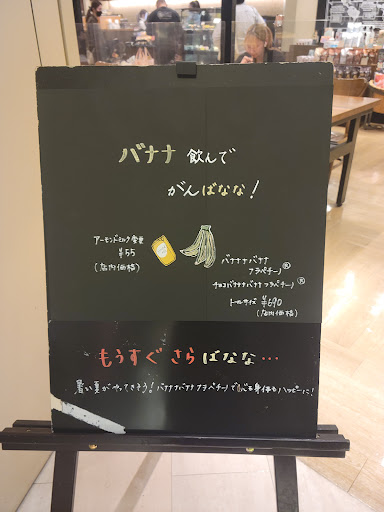 バナナ 飲んで
がんばなな!
アーモンドミルク変更
¥55
(店内価格)
バナナナバナナ
フラペチーノ®
チョコバナナナバナナフラペチーノ®
トールサイズ ¥690
(店内価格)
もうすぐ さらばなな…
暑い夏がやってきそう! バナナナバナナフラペチーノで心も身体もハッピーに!